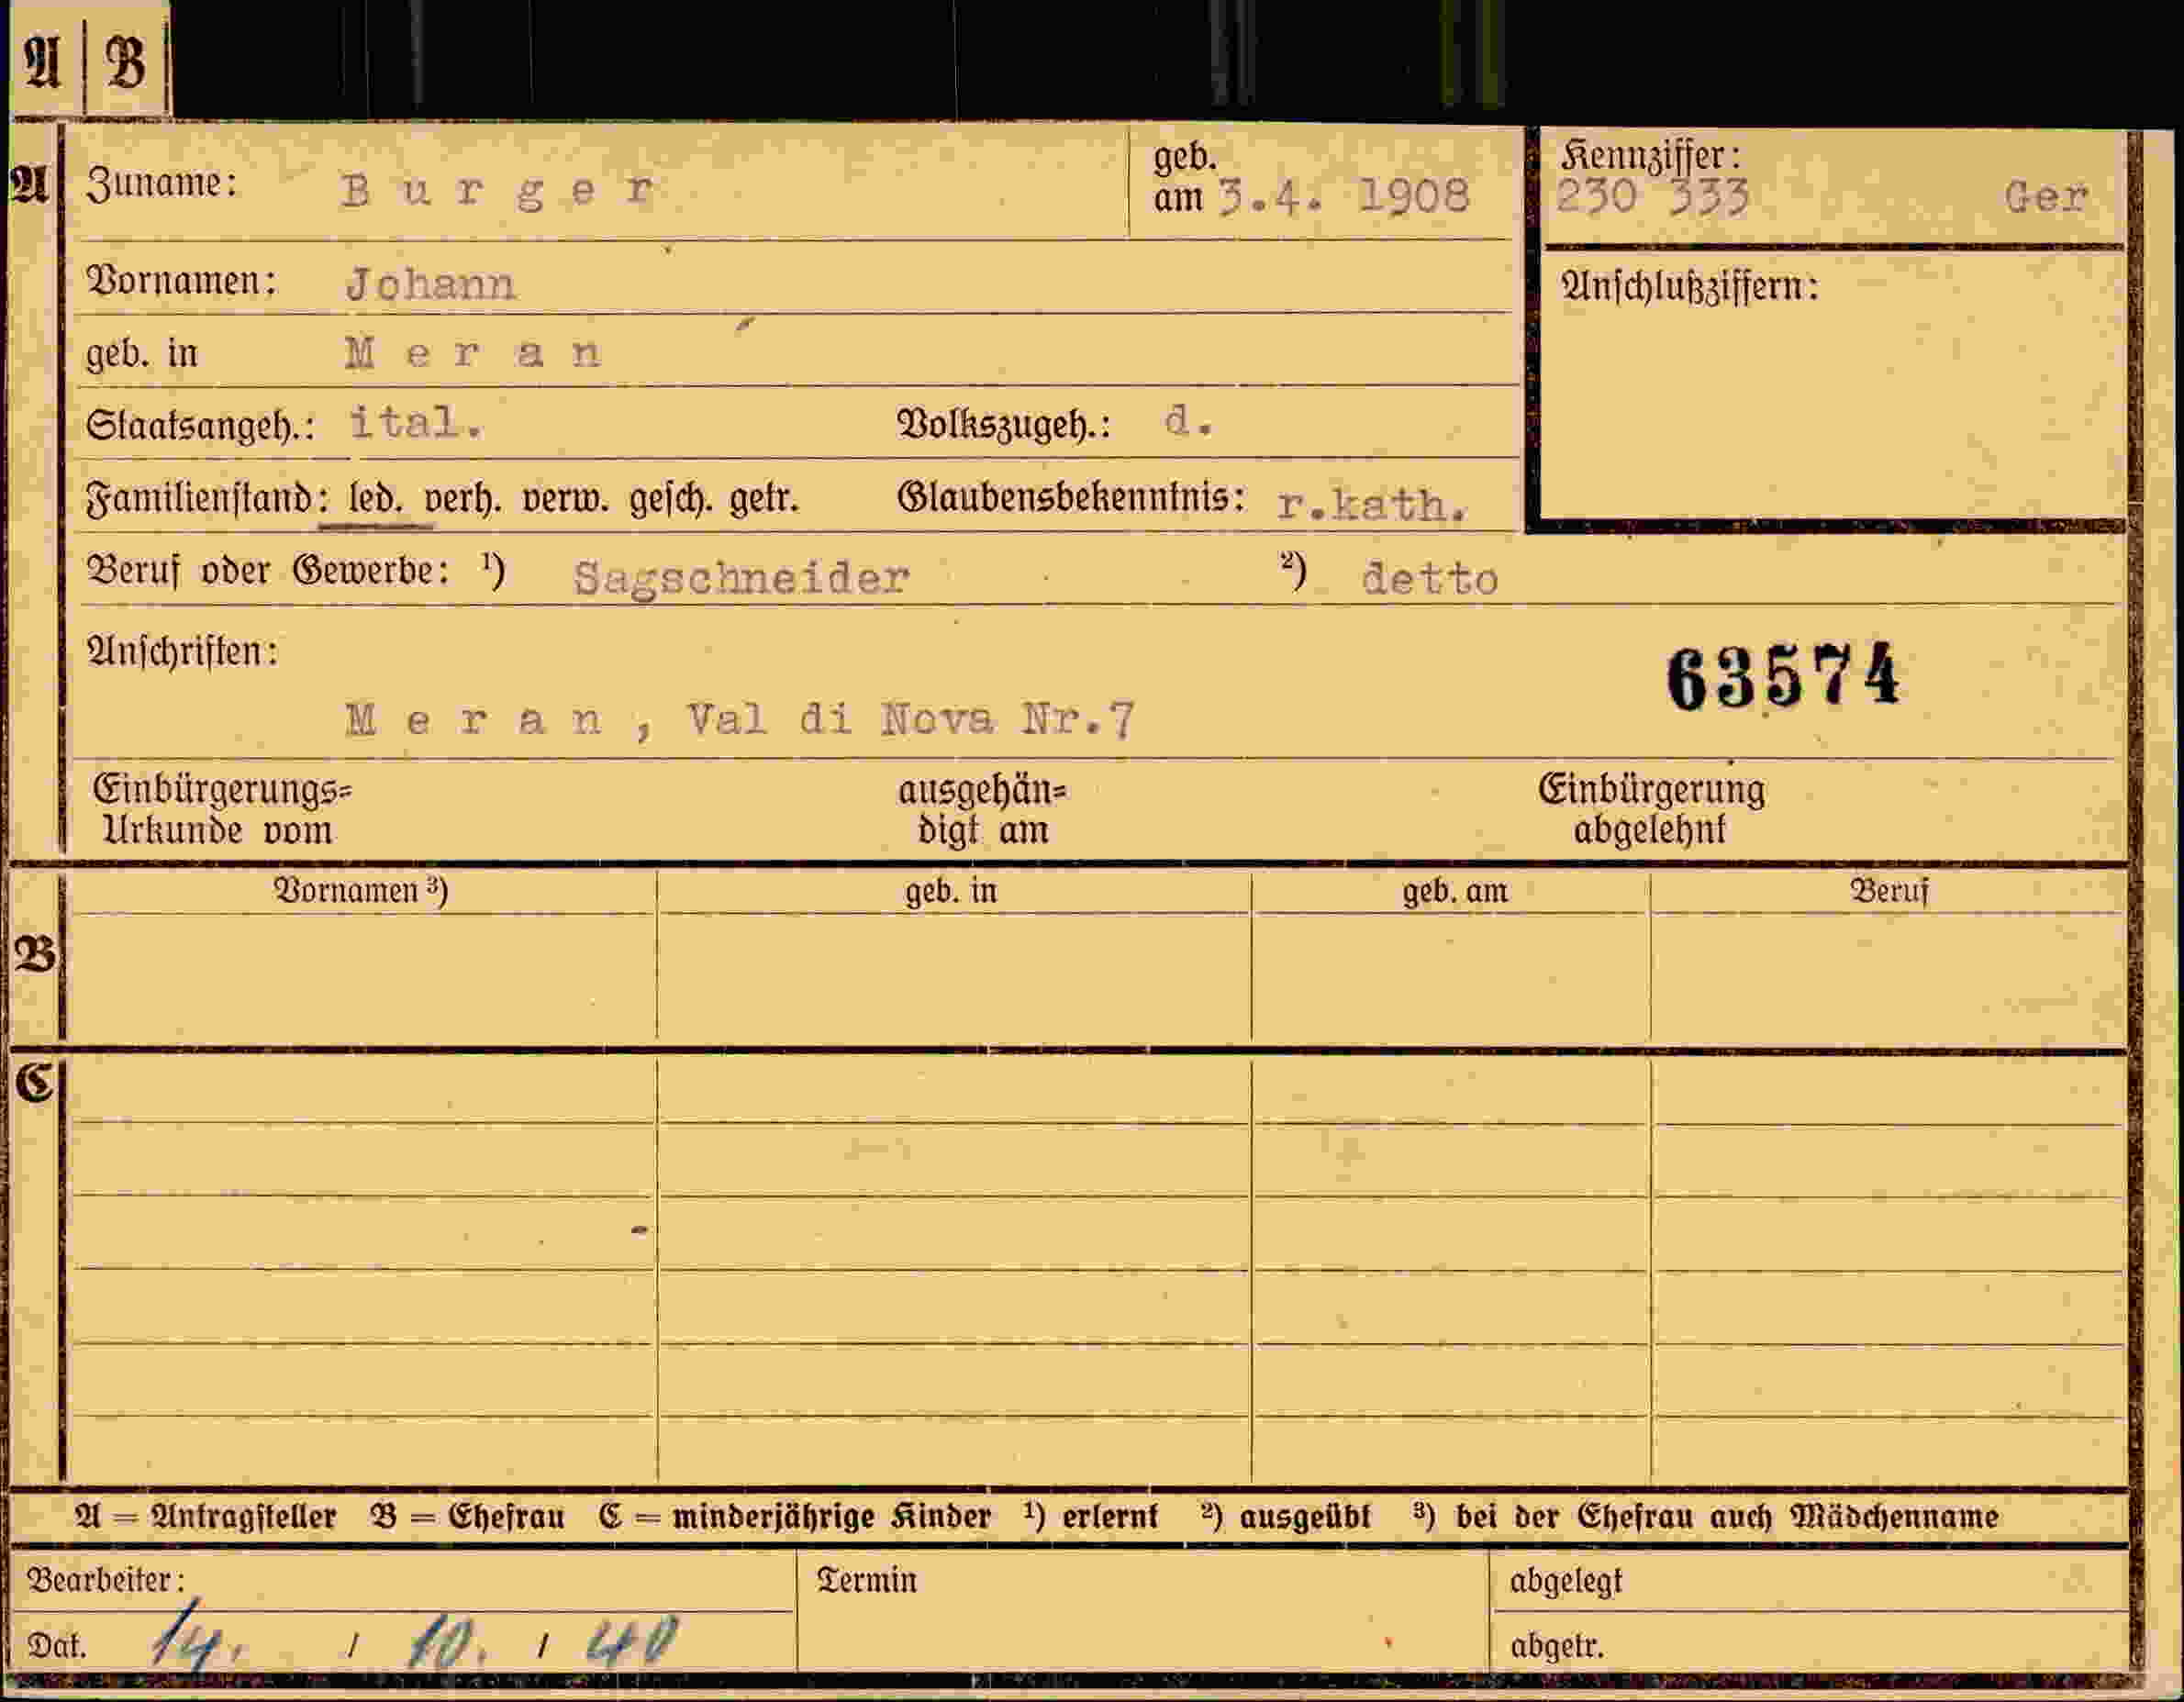 A | B
A
Zuname: Burger geb. am 3.4. 1908
Kennziffer: 230 333 Ger
Vornamen: Johann
Anschlußziffern:
geb. in Meran
Staatsangeh.: ital. Volkszugeh.: d.
Familienstand: led. verh. verw. gesch. getr. Glaubensbekenntnis: r.kath.
Beruf oder Gewerbe: ¹) Sagschneider ²) detto
Anschriften:
63574
Meran, Val di Nova Nr.7
Einbürgerungs= ausgehän= Einbürgerung
Urkunde vom digt am abgelehnt
Vornamen ³) geb. in geb. am Beruf
B
C
A = Antragsteller B = Ehefrau C = minderjährige Kinder ¹) erlernt ²) ausgeübt ³) bei der Ehefrau auch Mädchenname
Bearbeiter: Termin abgelegt
Dat. 14. / 10. / 40 abgetr.